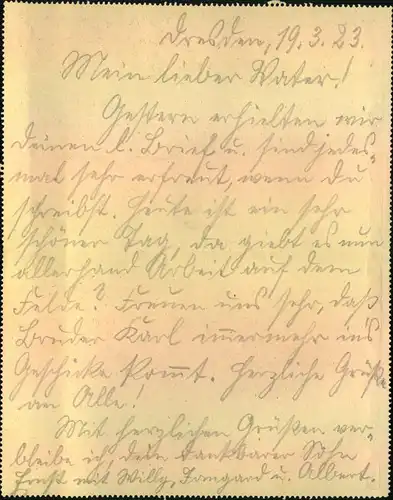 Dresden, 19. 3. 23.
Mein lieber Vater!
Gestern erhielten wir
deinen l. Brief u. sind jedes-
mal sehr erfreut, wenn du
schreibst. Heute ist ein sehr
schöner Tag, da giebt es nun
allerhand Arbeit auf dem
Felde? Freuen uns sehr, daß
Bruder Karl immermehr ins
Geschicke kommt. Herzliche Grüße
an Alle!
Mit herzlichen Grüßen ver-
bleibe ich dein dankbarer Sohn
Ernst mit Willy, Irmgard u. Albert.